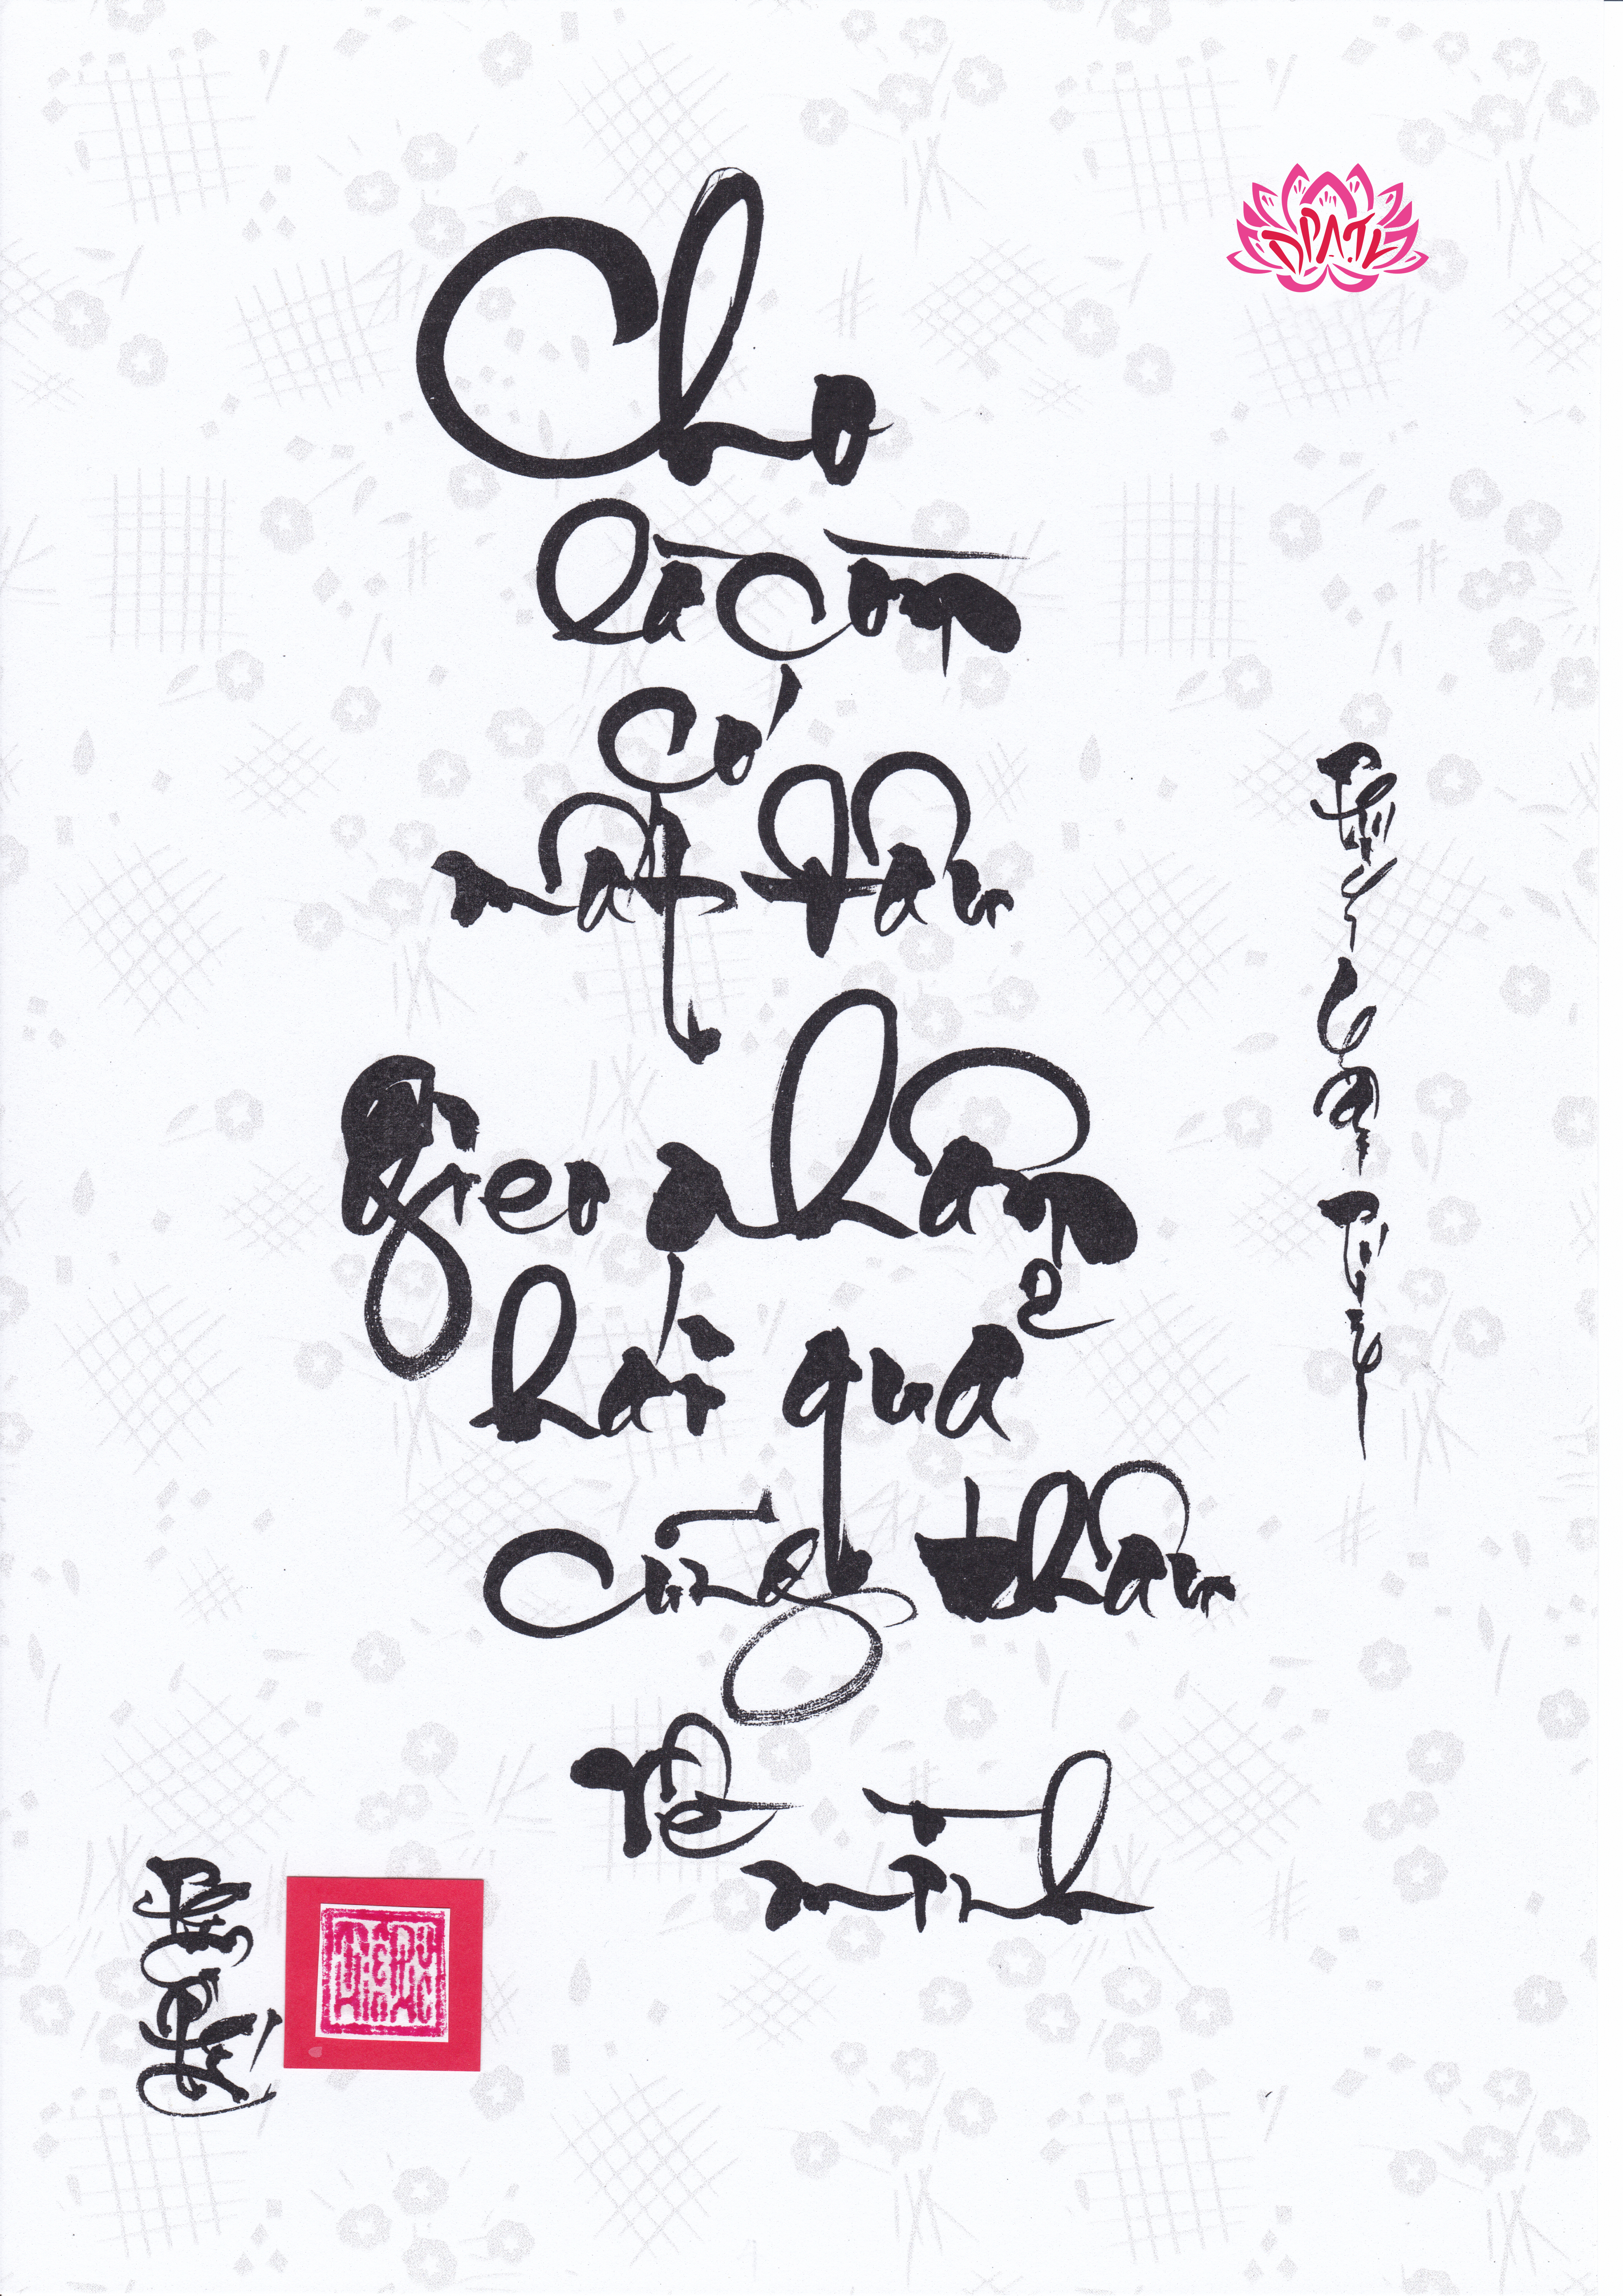 Cho
là còn
có
mất đâu
gieo nhân
hái quả
cũng thâu
về
mình